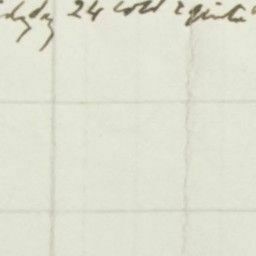 day 24 cold & quite